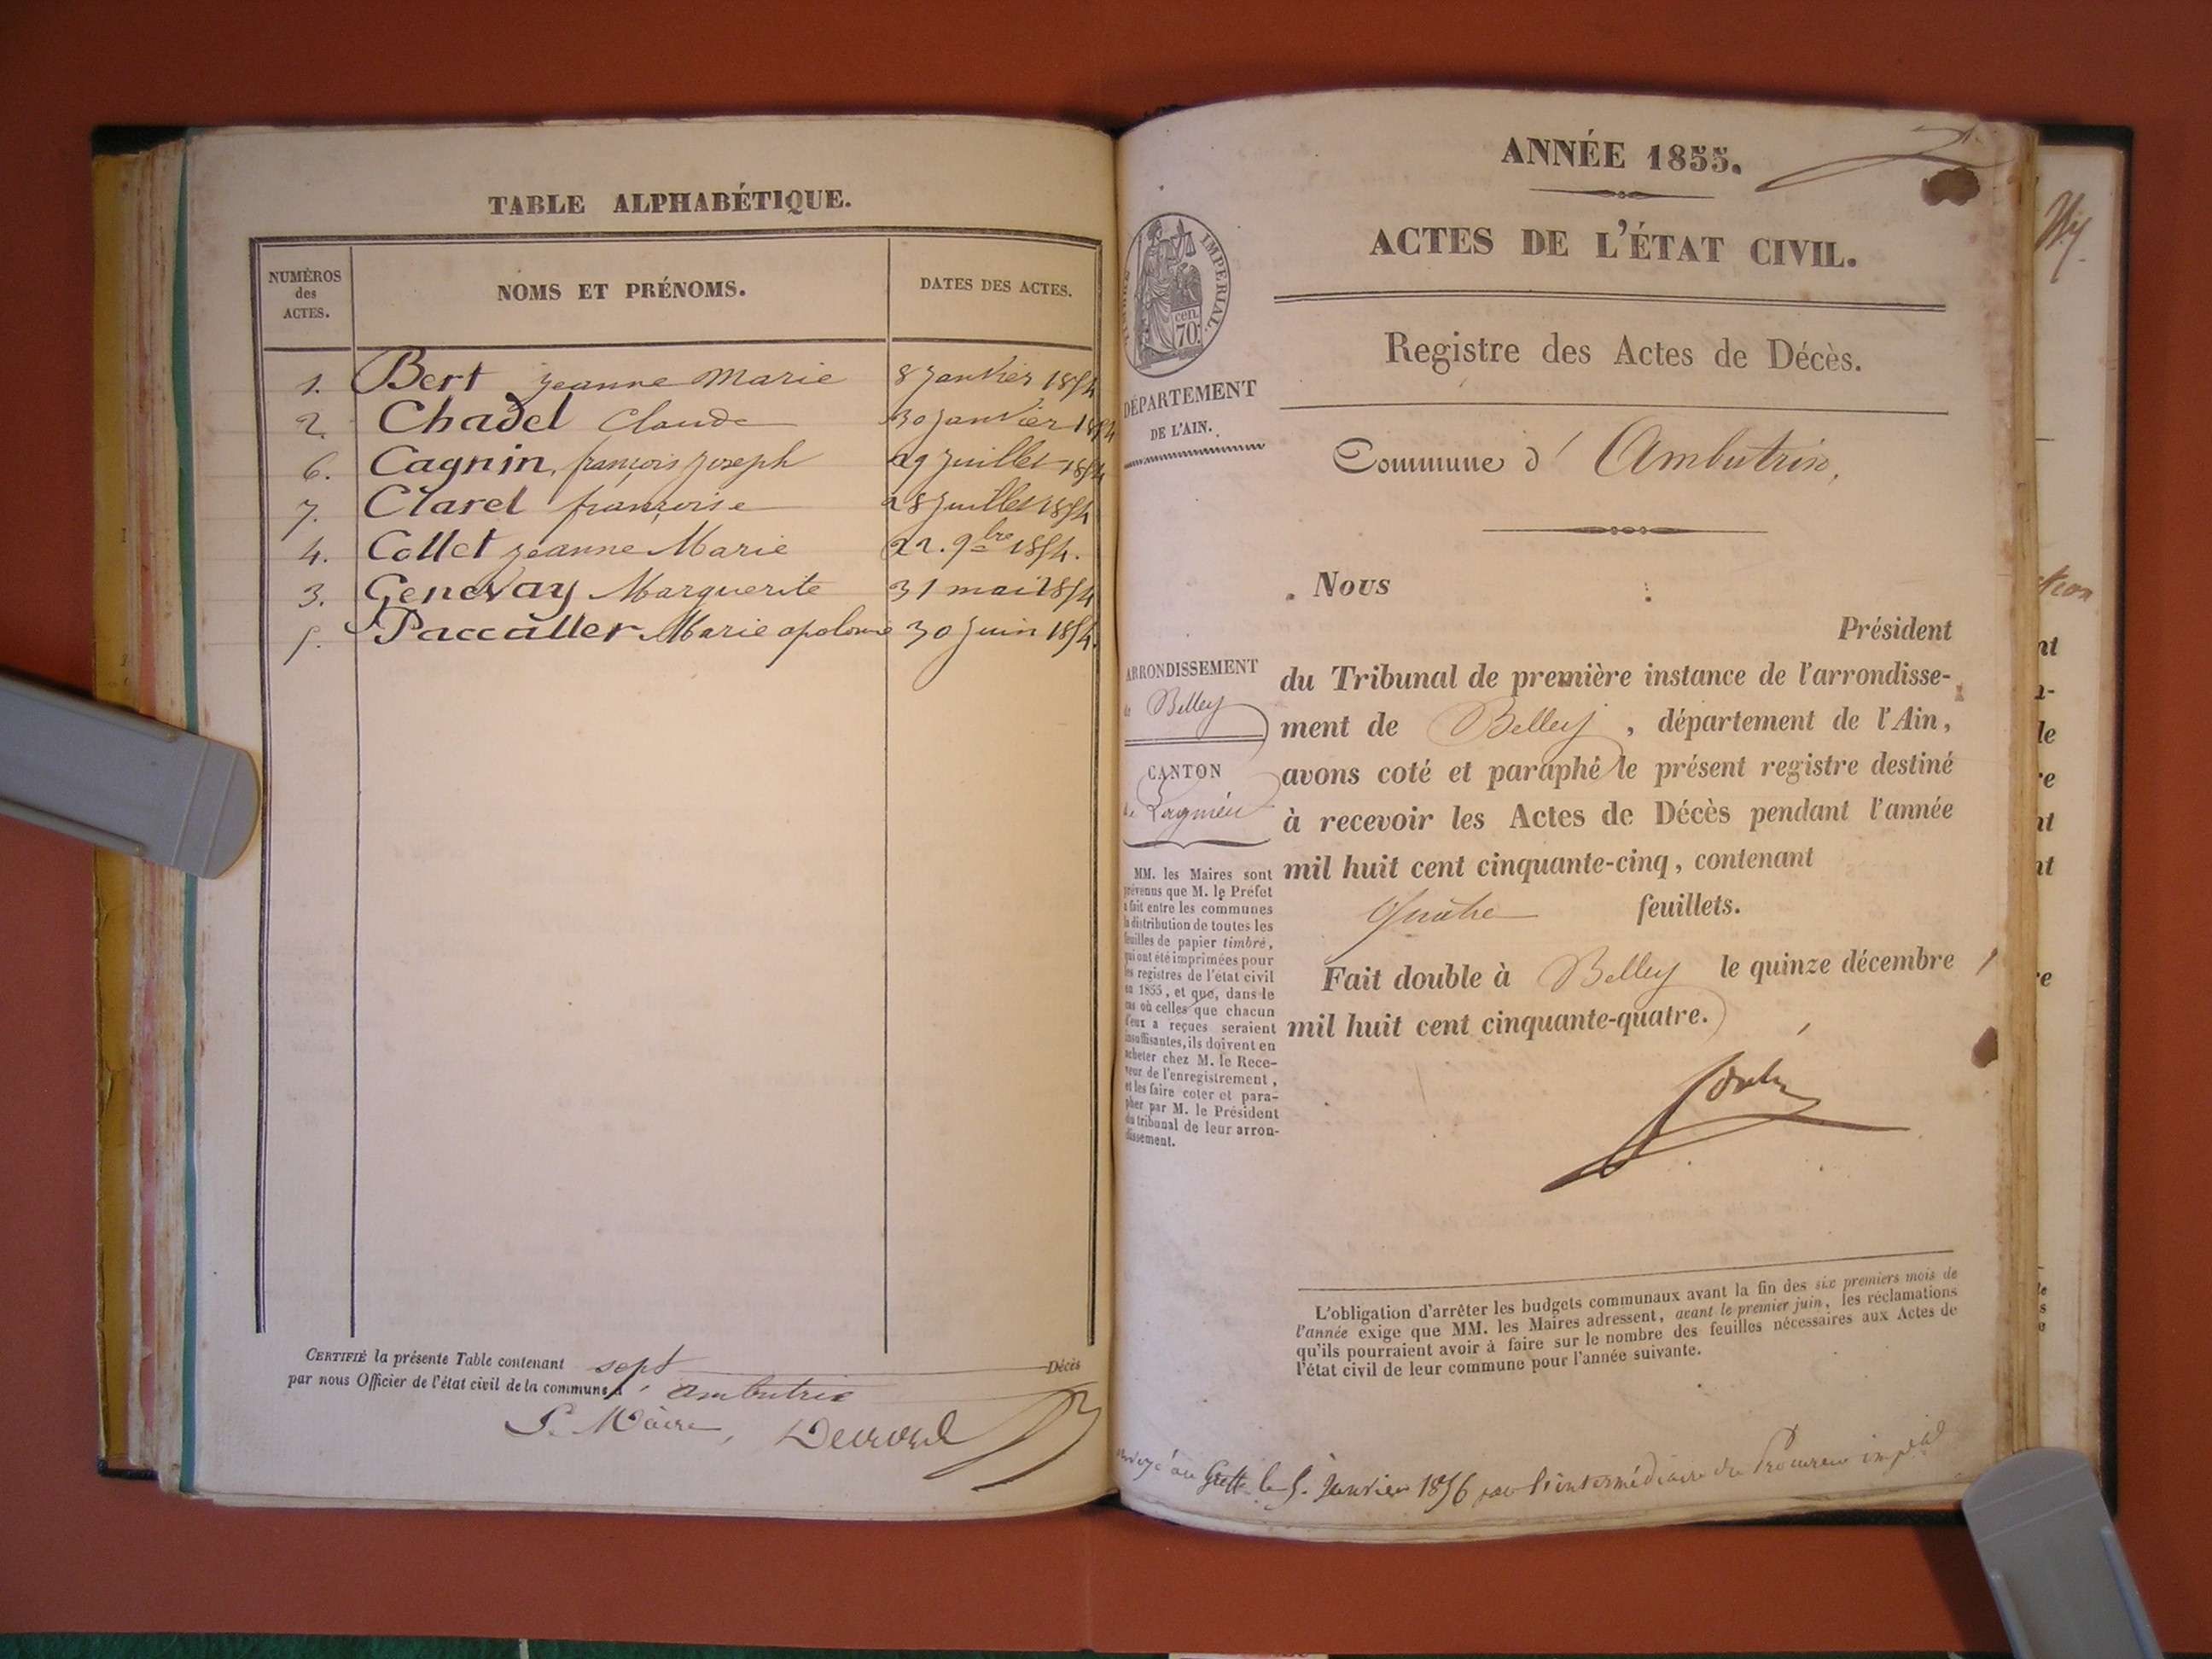 TABLE ALPHABÉTIQUE.
NUMÉROS
des
ACTES.
NOMS ET PRÉNOMS.
DATES DES ACTES.
1. Bert jeanne Marie 8 Janvier 1854
2. Chadel Claude 30 janvier 1854
6. Cagnin, françois joseph 29 juillet 1854
7. Clarel françoise 28 juillet 1854
4. Collet jeanne Marie 22. 9bre 1854.
3. Genevay Marguerite 31 mai 1854
5. Paccaller Marie apolonie 30 juin 1854.
CERTIFIÉ la présente Table contenant sept Décès
par nous Officier de l'état civil de la commune d' ambutrix
Le Maire,
ANNÉE 1855.
ACTES DE L'ÉTAT CIVIL.
Registre des Actes de Décès.
TIMBRE IMPÉRIAL.
70.
cen.
DÉPARTEMENT
DE L'AIN.
Commune d' Ambutrix,
Nous
Président
du Tribunal de première instance de l'arrondisse-
ment de Belley, département de l'Ain,
avons coté et paraphé le présent registre destiné
à recevoir les Actes de Décès pendant l'année
mil huit cent cinquante-cinq, contenant
Quatre feuillets.
Fait double à Belley le quinze décembre
mil huit cent cinquante-quatre.
ARRONDISSEMENT
de Belley
CANTON
de Lagnieu
MM. les Maires sont
prévenus que M. le Préfet
a fait entre les communes
la distribution de toutes les
feuilles de papier timbré,
qui ont été imprimées pour
les registres de l'état civil
en 1855, et que, dans le
cas où celles que chacun
d'eux a reçues seraient
insuffisantes, ils doivent en
acheter chez M. le Rece-
veur de l'enregistrement,
et les faire coter et para-
pher par M. le Président
du tribunal de leur arron-
dissement.
L'obligation d'arrêter les budgets communaux avant la fin des six premiers mois de
l'année exige que MM. les Maires adressent, avant le premier juin, les réclamations
qu'ils pourraient avoir à faire sur le nombre des feuilles nécessaires aux Actes de
l'état civil de leur commune pour l'année suivante.
envoyé au Greffe le 5. Janvier 1856 par l'intermédiaire du Procureur impérial